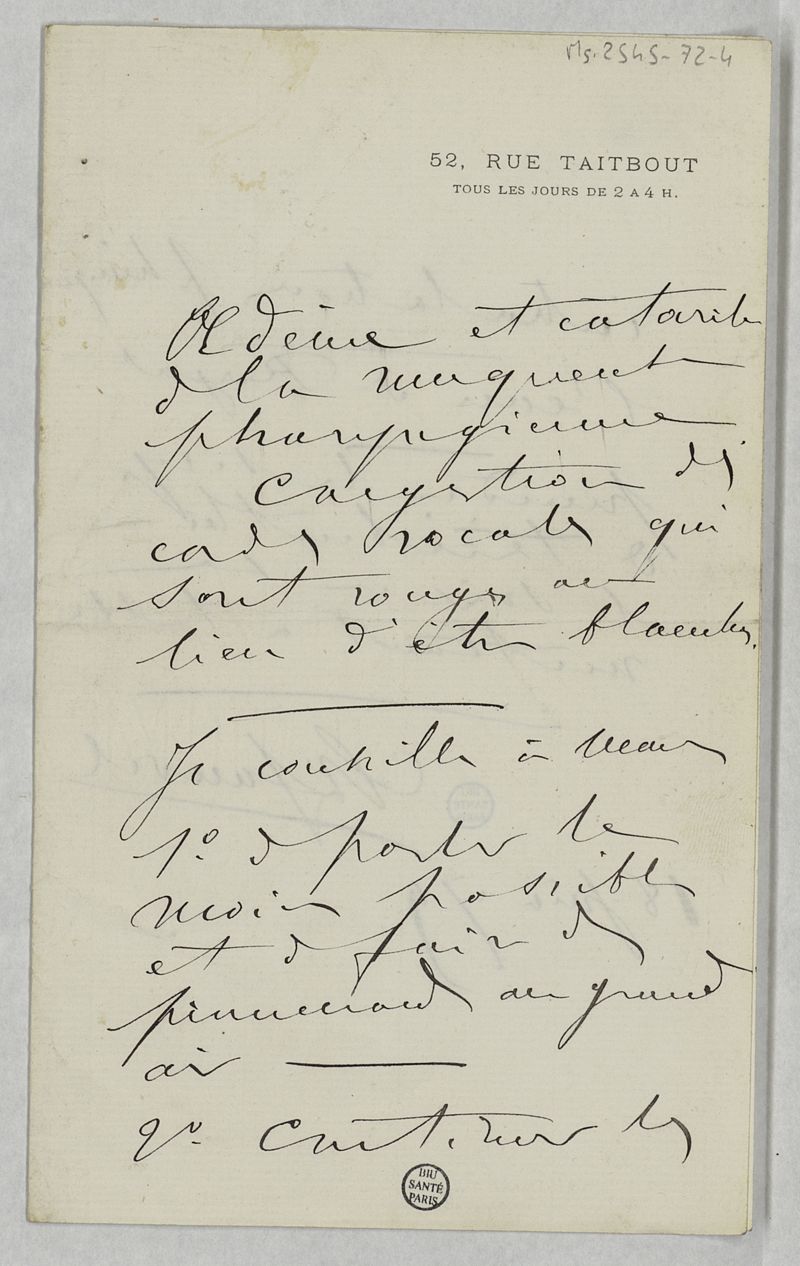 Ms. 2545-72-4
52, RUE TAITBOUT
TOUS LES JOURS DE 2 A 4 H.
Œdème et catarrhe
de la muqueuse
pharyngienne
Congestion des
cordes vocales qui
sont rouges au
lieu d'être blanches.
Je conseille à
1º de parler le
moins possible
et de faire des
promenades au grand
air
2º Continuer les
BIU
SANTÉ
PARIS